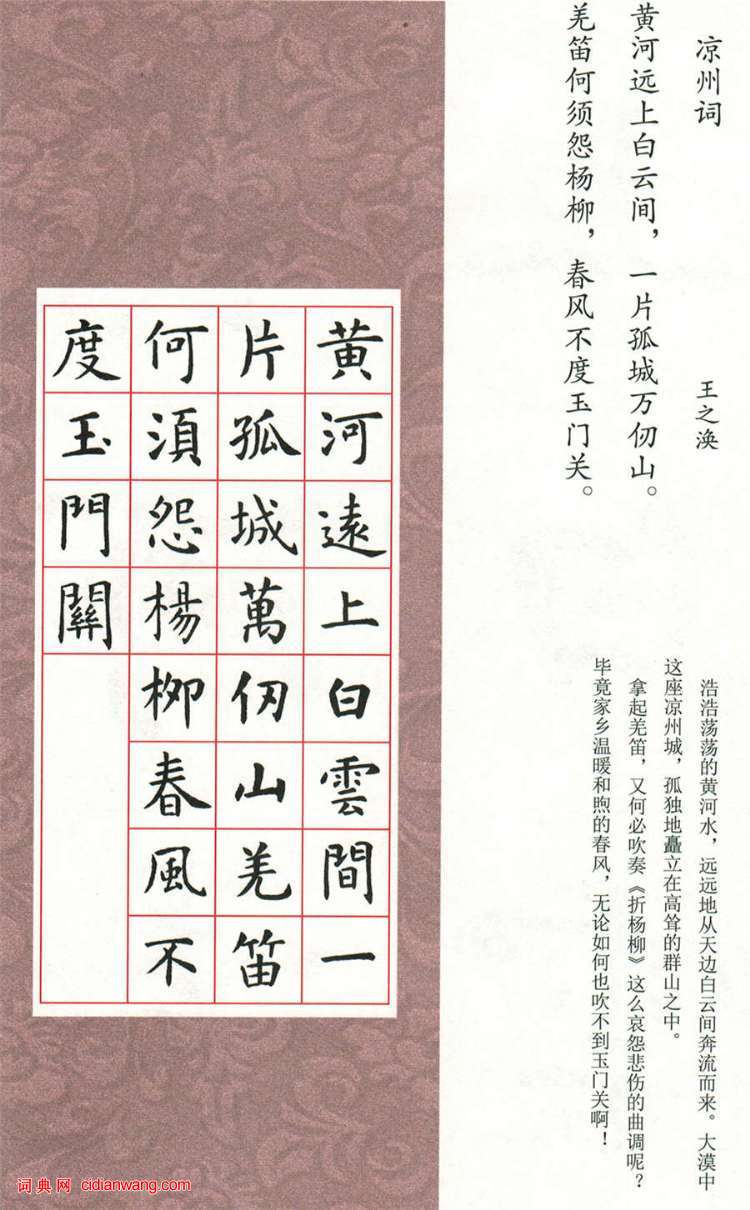 凉州词
王之涣
黄河远上白云间，一片孤城万仞山。
羌笛何须怨杨柳，春风不度玉门关。
浩浩荡荡的黄河水，远远地从天边白云间奔流而来。大漠中
这座凉州城，孤独地矗立在高耸的群山之中。
拿起羌笛，又何必吹奏《折杨柳》这么哀怨悲伤的曲调呢？
毕竟家乡温暖和煦的春风，无论如何也吹不到玉门关啊！
黄河遠上白雲間一
片孤城萬仞山羌笛
何須怨楊柳春風不
度玉門關
词典网 cidianwang.com